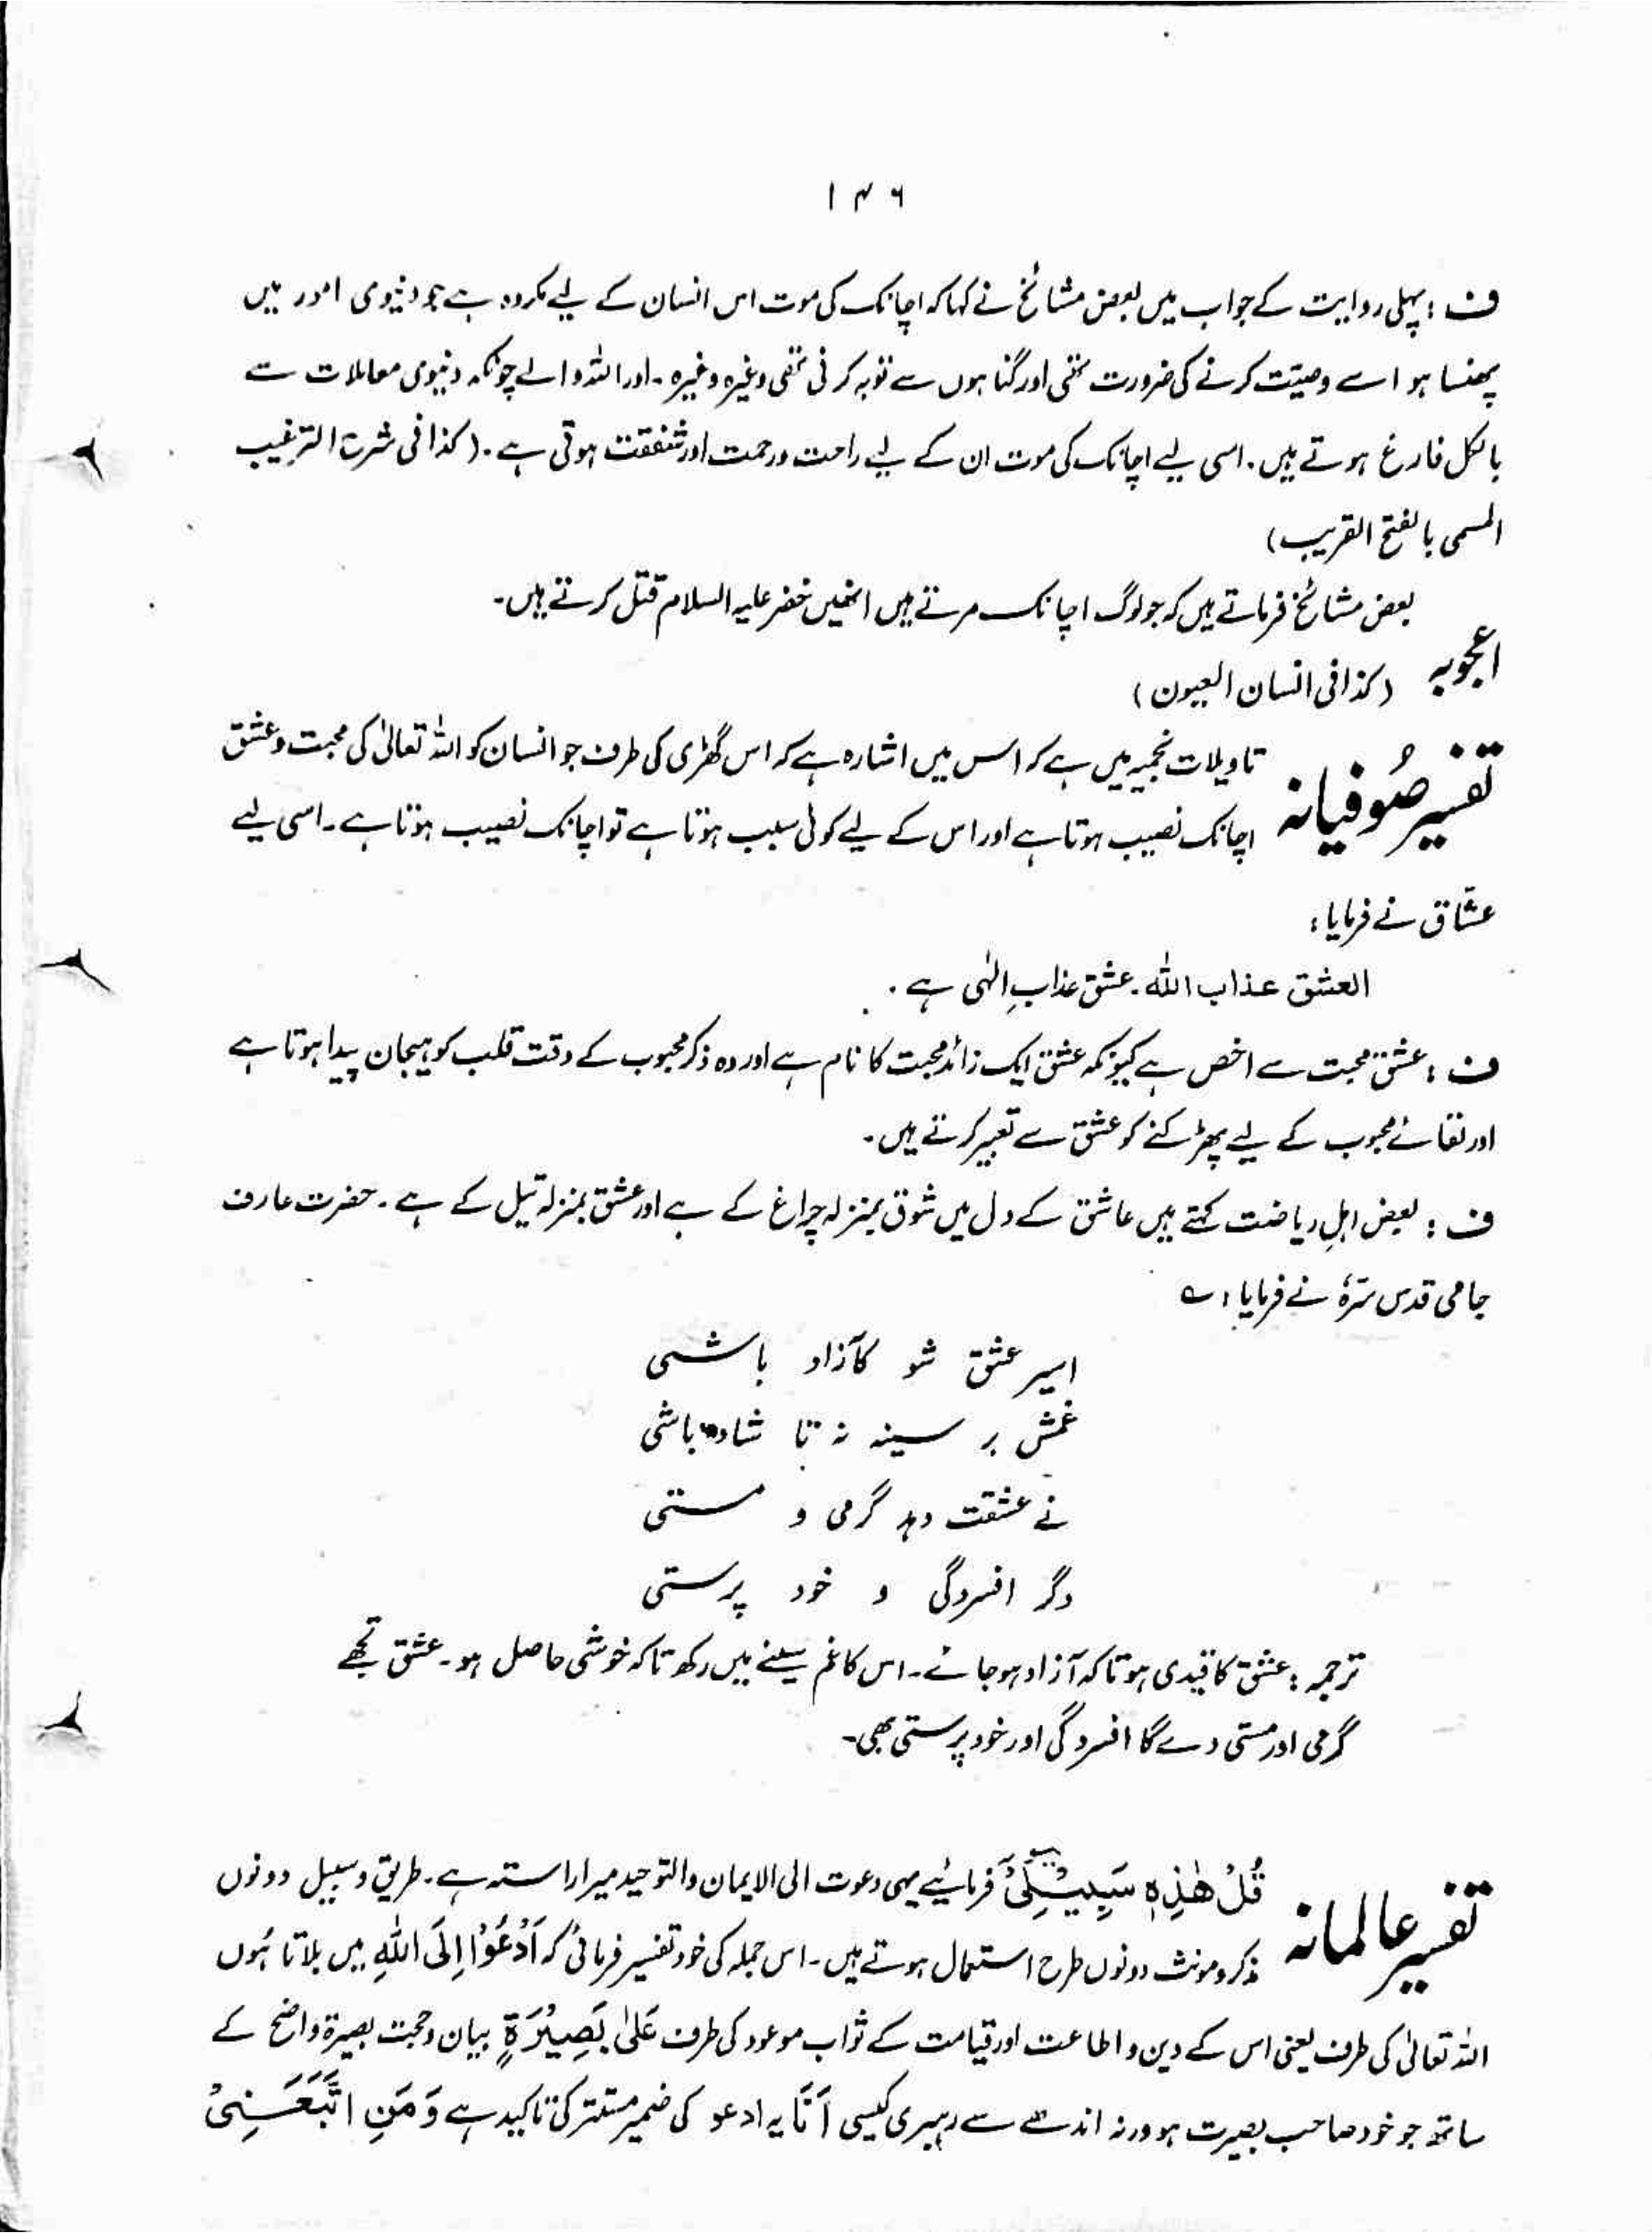 ۱۴۶
ف : پہلی روایت کے جواب میں بعض مشائخ نے کہا کہ اچانک کی موت اس انسان کے لیے مکروہ ہے جو دنیوی امور میں
پھنسا ہو اسے وصیت کرنے کی ضرورت تھی اور گناہوں سے توبہ کرنی تھی وغیرہ وغیرہ ۔ اور اللہ والے چونکہ دنیوی معاملات سے
بالکل فارغ ہوتے ہیں ۔ اسی لیے اچانک کی موت ان کے لیے راحت ورحمت اور شفقت ہوتی ہے ۔ (کذا فی شرح الترغیب
المسمی بالفتح القریب)
بعض مشائخ فرماتے ہیں کہ جو لوگ اچانک مرتے ہیں انھیں خضر علیہ السلام قتل کرتے ہیں۔
اعجوبہ (کذا فی انسان العیون)
تفسیر صُوفیانہ تاویلات نجمیہ میں ہے کہ اس میں اشارہ ہے کہ اس گھڑی کی طرف جو انسان کو اللہ تعالیٰ کی محبت وعشق
اچانک نصیب ہوتا ہے اور اس کے لیے کوئی سبب ہوتا ہے تو اچانک نصیب ہوتا ہے ۔ اسی لیے
عشّاق نے فرمایا :
العشق عذاب اللہ ۔ عشق عذابِ الٰہی ہے ۔
ف : عشق محبت سے اخص ہے کیونکہ عشق ایک زائد محبت کا نام ہے اور وہ ذکر محبوب کے وقت قلب کو ہیجان پیدا ہوتا ہے
اور لقائے محبوب کے لیے پھڑکنے کو عشق سے تعبیر کرتے ہیں ۔
ف : بعض اہلِ ریاضت کہتے ہیں عاشق کے دل میں شوق بمنزلہ چراغ کے ہے اور عشق بمنزلہ تیل کے ہے ۔ حضرت عارف
جامی قدس سرّہٗ نے فرمایا : ؎
اسیر عشق شو کآزاد باشی
غمش بر سینہ نہ تا شاد باشی
نے عشقت دہد گرمی و مستی
دگر افسردگی و خود پرستی
ترجمہ : عشق کا قیدی ہو تاکہ آزاد ہو جائے ۔ اس کا غم سینے میں رکھ تاکہ خوشی حاصل ہو ۔ عشق تجھے
گرمی اور مستی دے گا افسردگی اور خود پرستی بھی ۔
تفسیر عالمانہ قُلْ هٰذِهٖ سَبِيْلِيْۤ فرمائیے یہی دعوت الی الایمان والتوحید میرا راستہ ہے ۔ طریق وسبیل دونوں
مذکر ومونث دونوں طرح استعمال ہوتے ہیں ۔ اس جملہ کی خود تفسیر فرمائی کہ اَدْعُوْا اِلَى اللّٰهِ میں بلاتا ہُوں
اللہ تعالیٰ کی طرف یعنی اس کے دین واطاعت اور قیامت کے ثواب موعود کی طرف عَلٰى بَصِيْرَةٍ بیان وحجت بصیرۃ واضح کے
ساتھ جو خود صاحب بصیرت ہو ورنہ اندھے سے رہبری کیسی اَنَا یہ ادعو کی ضمیر مستتر کی تاکید ہے وَمَنِ اتَّبَعَنِيْ